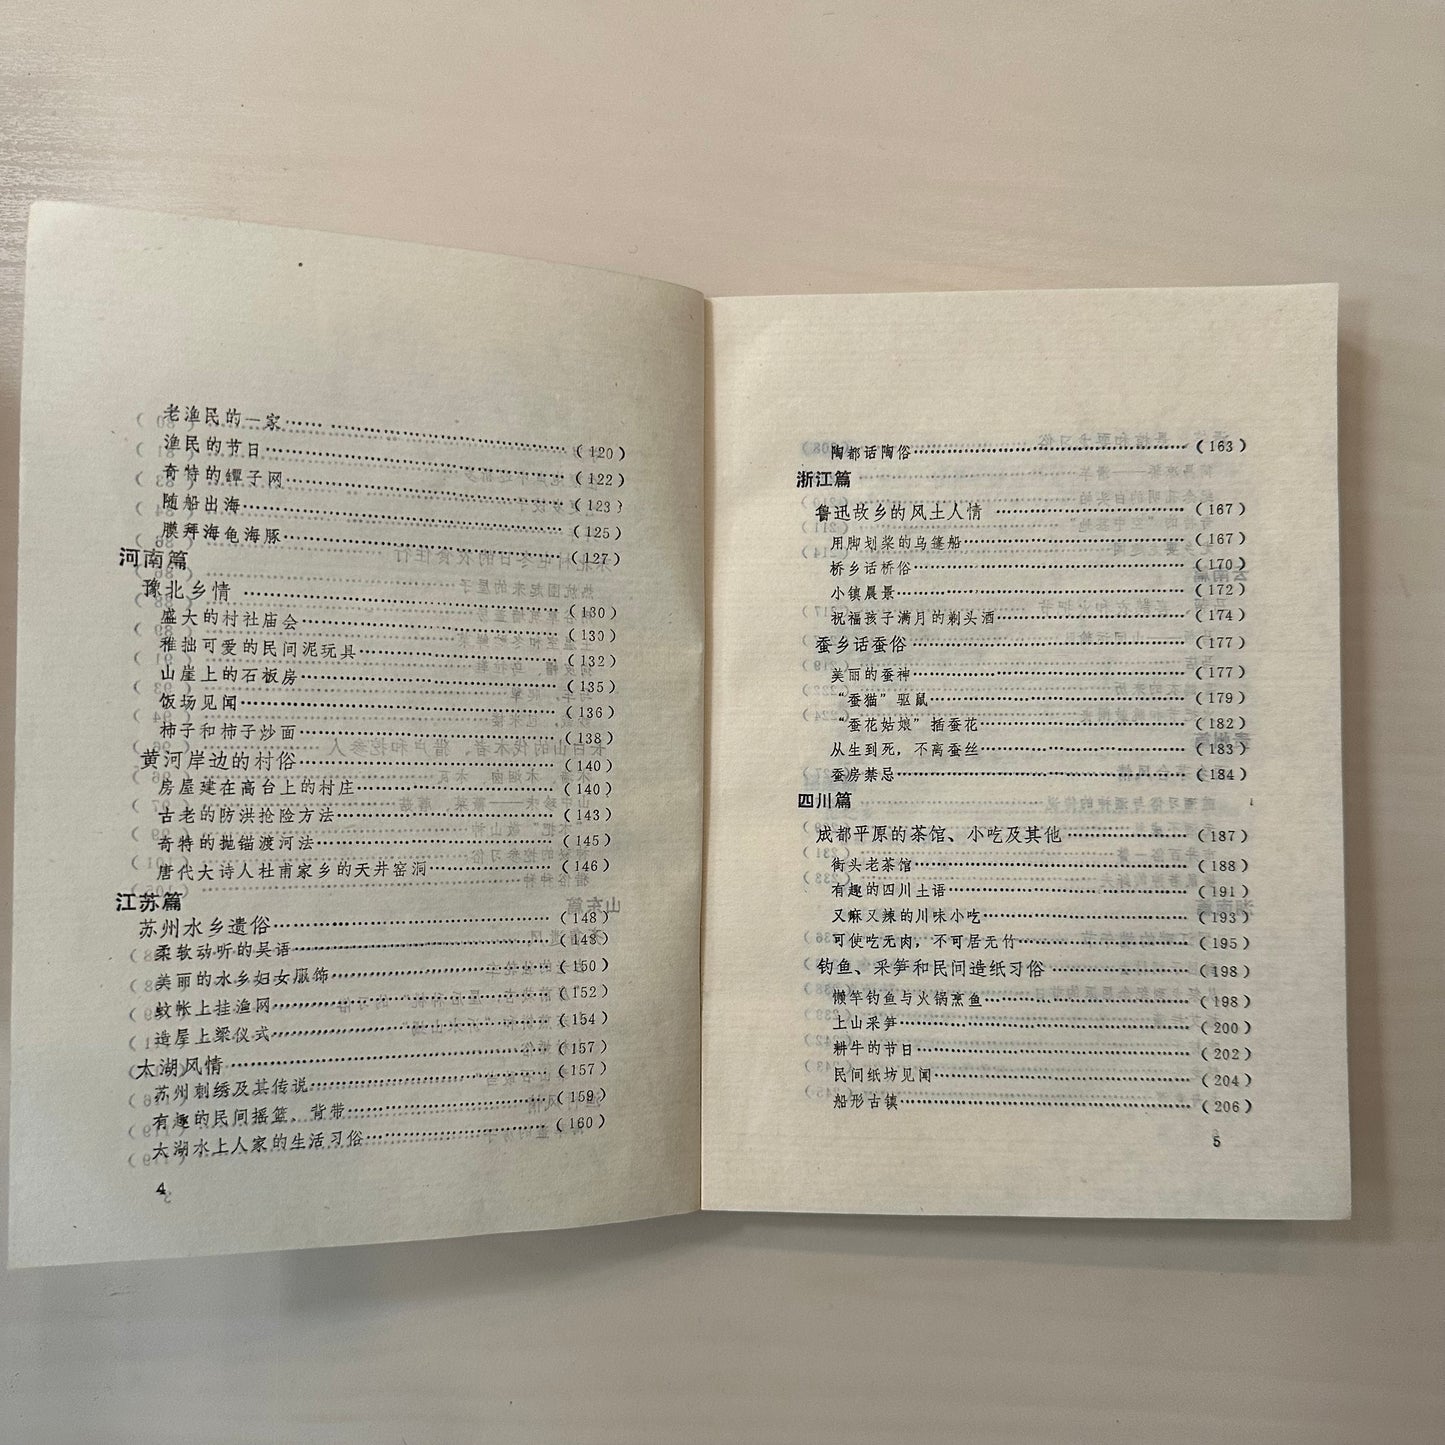 老渔民的一家……………………(120)
渔民的节日……………………(122)
奇特的罈子网……………………(123)
随船出海……………………(125)
膜拜海龟海豚……………………(127)
河南篇
豫北乡情……………………(130)
盛大的村社庙会……………………(130)
稚拙可爱的民间泥玩具……………………(132)
山崖上的石板房……………………(135)
饭场见闻……………………(136)
柿子和柿子炒面……………………(138)
黄河岸边的村俗……………………(140)
房屋建在高台上的村庄……………………(140)
古老的防洪抢险方法……………………(143)
奇特的抛锚渡河法……………………(145)
唐代大诗人杜甫家乡的天井窑洞……………………(146)
江苏篇
苏州水乡遗俗……………………(148)
柔软动听的吴语……………………(148)
美丽的水乡妇女服饰……………………(150)
蚊帐上挂渔网……………………(152)
造屋上梁仪式……………………(154)
太湖风情……………………(157)
苏州刺绣及其传说……………………(157)
有趣的民间摇篮、背带……………………(159)
太湖水上人家的生活习俗……………………(160)
4
陶都话陶俗……………………(163)
浙江篇
鲁迅故乡的风土人情……………………(167)
用脚划桨的乌篷船……………………(167)
桥乡话桥俗……………………(170)
小镇晨景……………………(172)
祝福孩子满月的剃头酒……………………(174)
蚕乡话蚕俗……………………(177)
美丽的蚕神……………………(177)
“蚕猫”驱鼠……………………(179)
“蚕花姑娘”插蚕花……………………(182)
从生到死，不离蚕丝……………………(183)
蚕房禁忌……………………(184)
四川篇
成都平原的茶馆、小吃及其他……………………(187)
街头老茶馆……………………(188)
有趣的四川土语……………………(191)
又麻又辣的川味小吃……………………(193)
可使吃无肉，不可居无竹……………………(195)
钓鱼、采笋和民间造纸习俗……………………(198)
懒竿钓鱼与火锅烹鱼……………………(198)
上山采笋……………………(200)
耕牛的节日……………………(202)
民间纸坊见闻……………………(204)
船形古镇……………………(206)
5